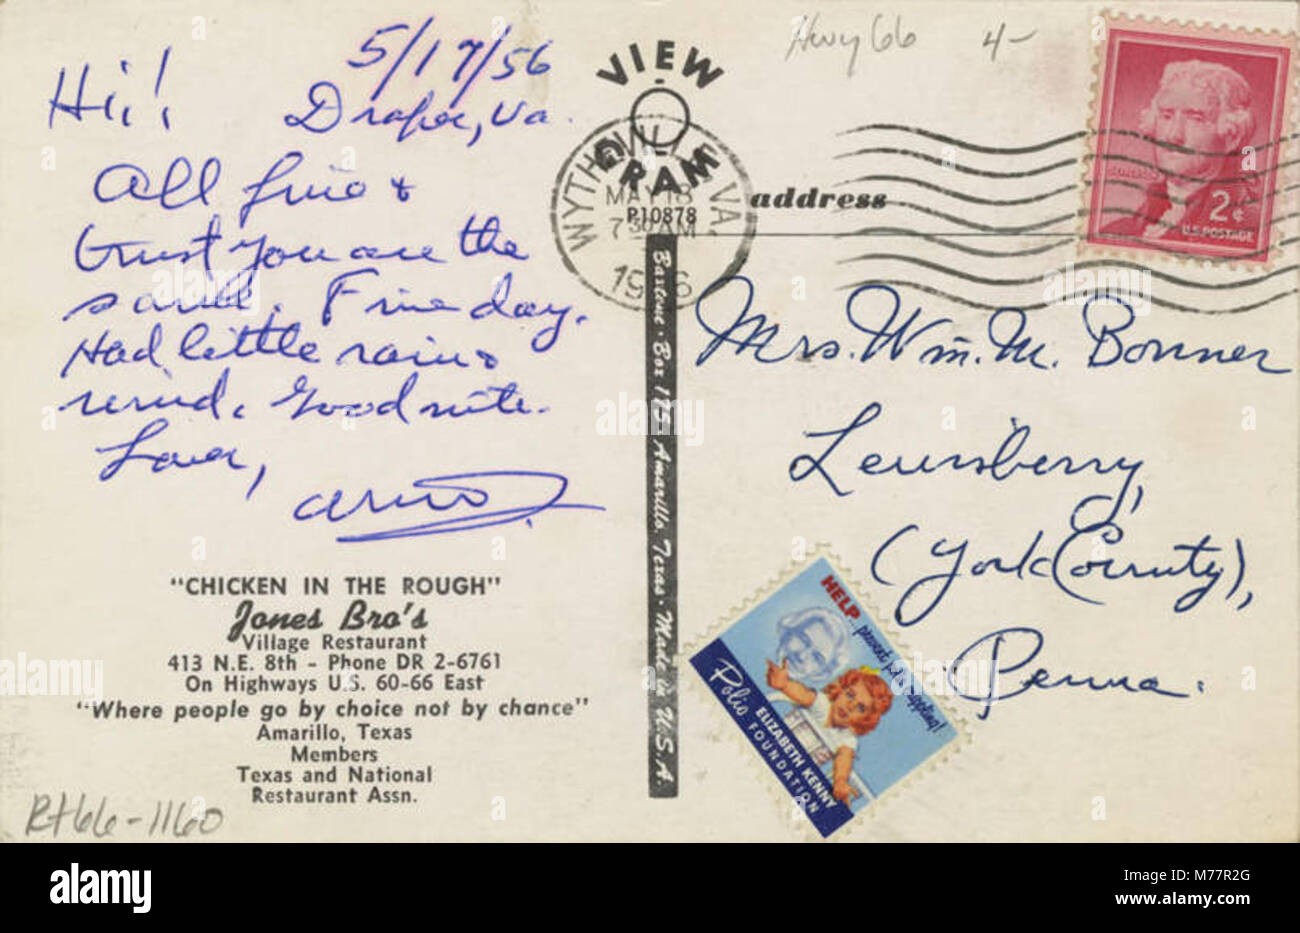 Hwy 66 4-
5/17/56
Hi! Draper, Va.
All fine &
trust you are the
same. Fine day.
Had little rain &
wind. Good nite.
Love,
"CHICKEN IN THE ROUGH"
Jones Bro's
Village Restaurant
413 N.E. 8th - Phone DR 2-6761
On Highways U.S. 60-66 East
"Where people go by choice not by chance"
Amarillo, Texas
Members
Texas and National
Restaurant Assn.
Rt66-1160
VIEW
O GRAM
P10878
WYTHEVILLE VA.
MAY 18
7 30 AM
1956
Baxtone · Box 175 · Amarillo, Texas · Made in U.S.A.
address
2¢
U.S. POSTAGE
Mrs. Wm. M. Bonner
Lewisberry,
(York County),
Penna.
HELP... prevent polio crippling!
Polio
ELIZABETH KENNY
FOUNDATION
alamy
a
alamy
Image ID: M77R2G
www.alamy.com